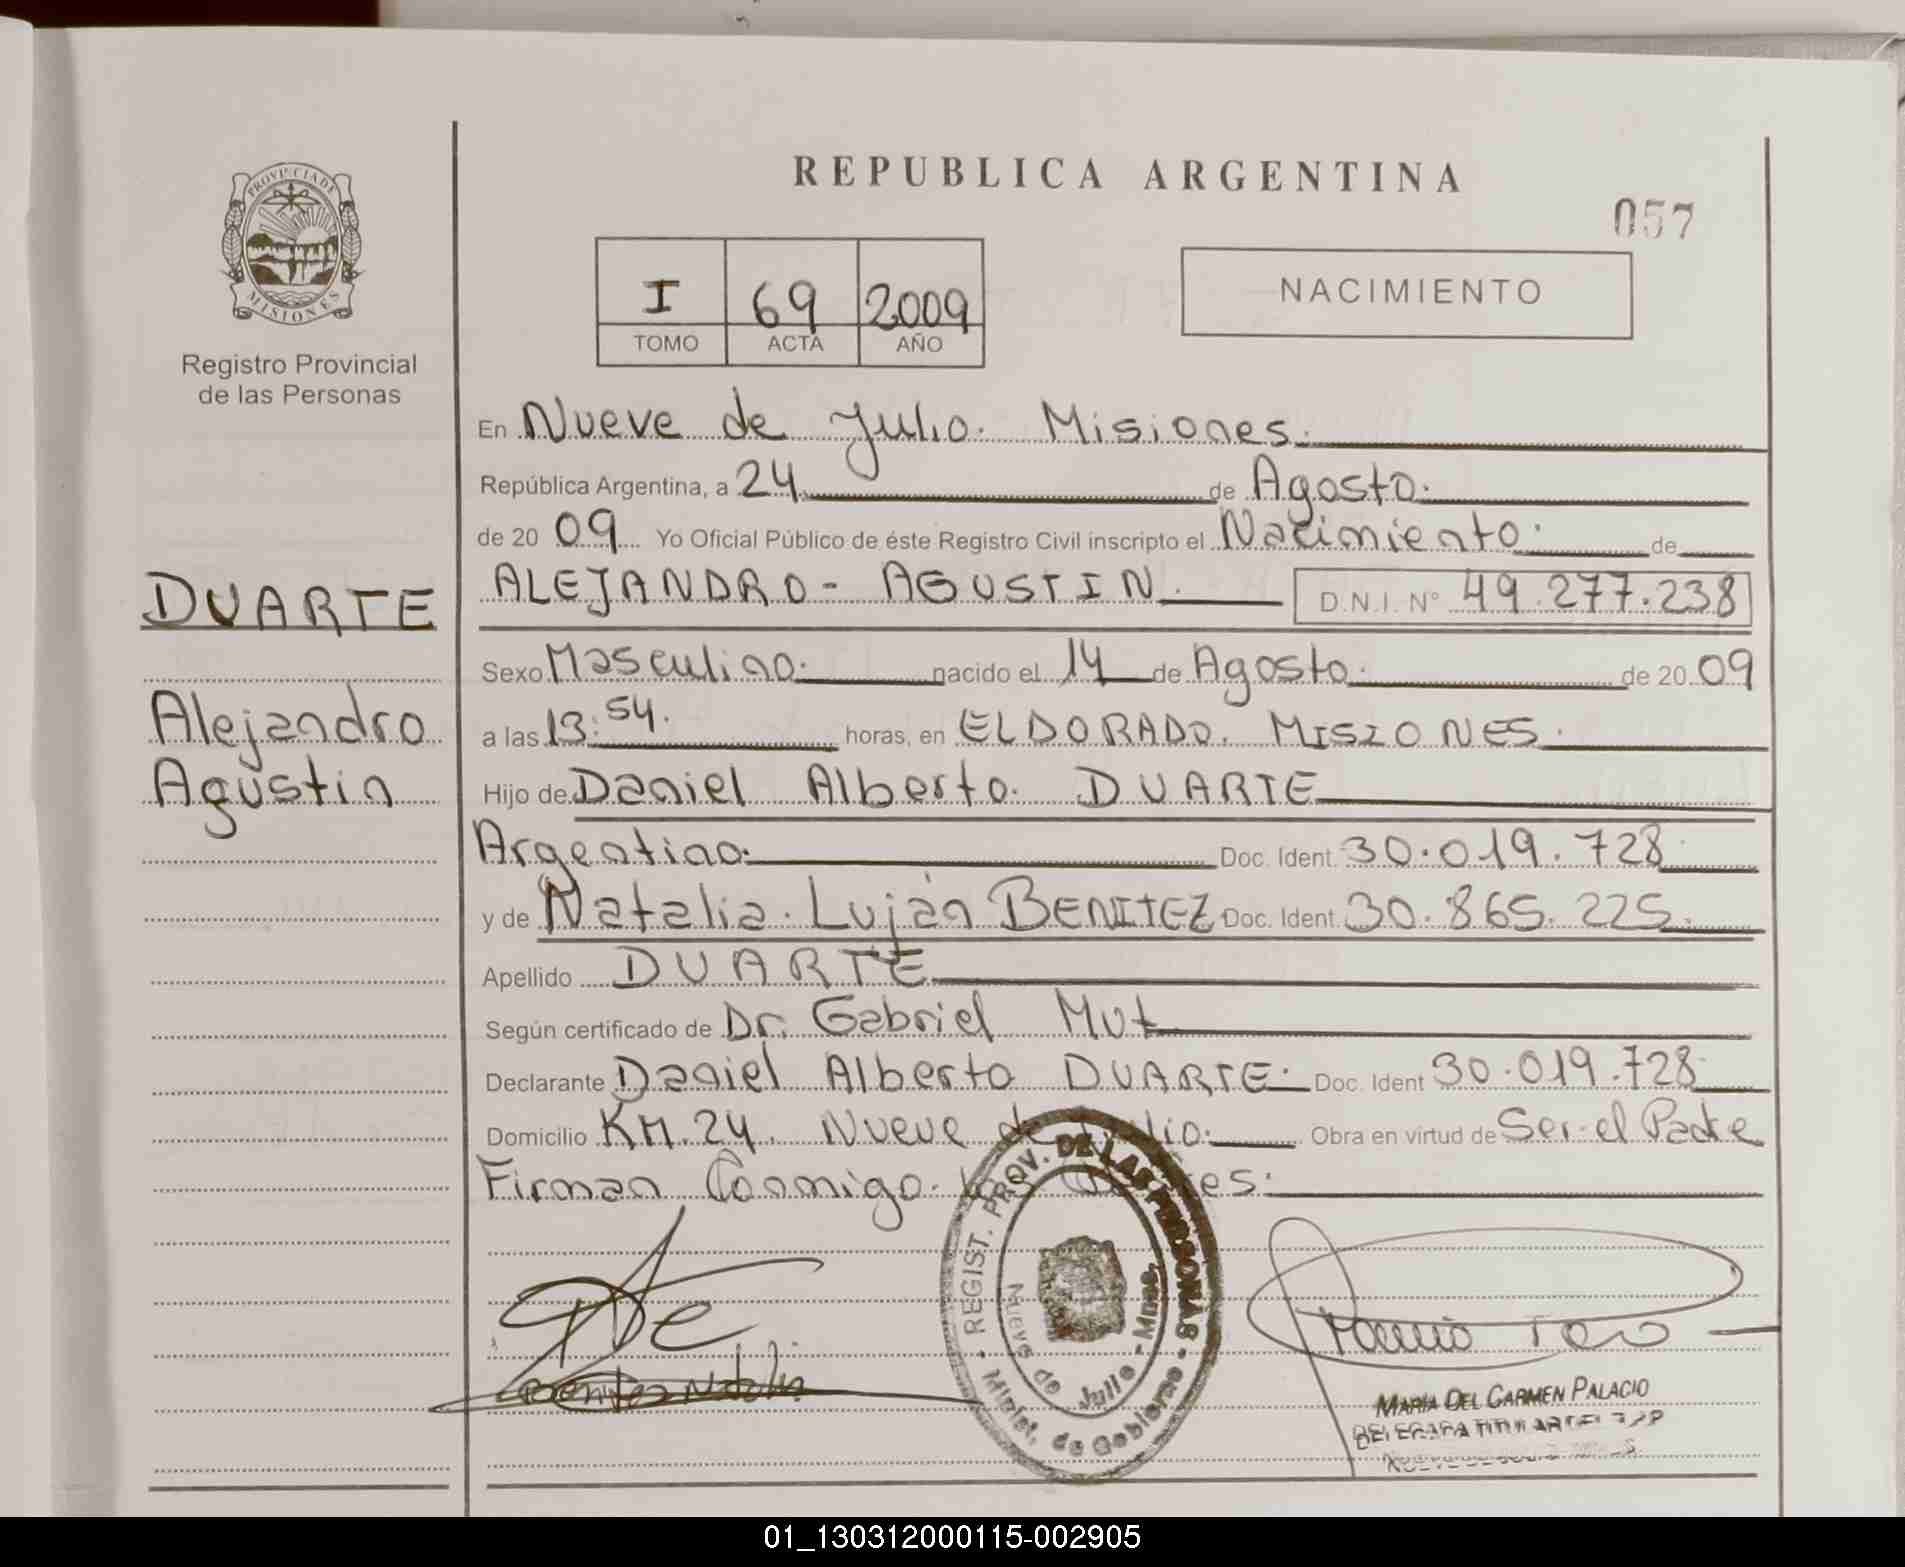 REPUBLICA ARGENTINA
057
PROVINCIA DE
MISIONES
Registro Provincial
de las Personas
I 69 2009
TOMO ACTA AÑO
NACIMIENTO
En Nueve de Julio. Misiones.
República Argentina, a 24 de Agosto.
de 20 09 Yo Oficial Público de éste Registro Civil inscripto el Nacimiento. de
DUARTE
Alejandro
Agustin
ALEJANDRO - AGUSTIN. D.N.I. Nº 49.277.238
Sexo Masculino. nacido el 14 de Agosto. de 20 09
a las 13:54. horas, en ELDORADO. MISIONES.
Hijo de Daniel Alberto. DUARTE
Argentino. Doc. Ident. 30.019.728
y de Natalia. Luján BENITEZ Doc. Ident. 30.865.225.
Apellido DUARTE
Según certificado de Dr. Gabriel Mut
Declarante Daniel Alberto DUARTE. Doc. Ident 30.019.728
Domicilio KM.24. Nueve de Julio. Obra en virtud de Ser el Padre
Firman Conmigo.
REGIST. PROV. DE LAS PERSONAS
Nueve de Julio - Mnes.
Minist. de Gobierno
Benitez Natalia
MARIA DEL CARMEN PALACIO
DELEGADA TITULAR
01_130312000115-002905